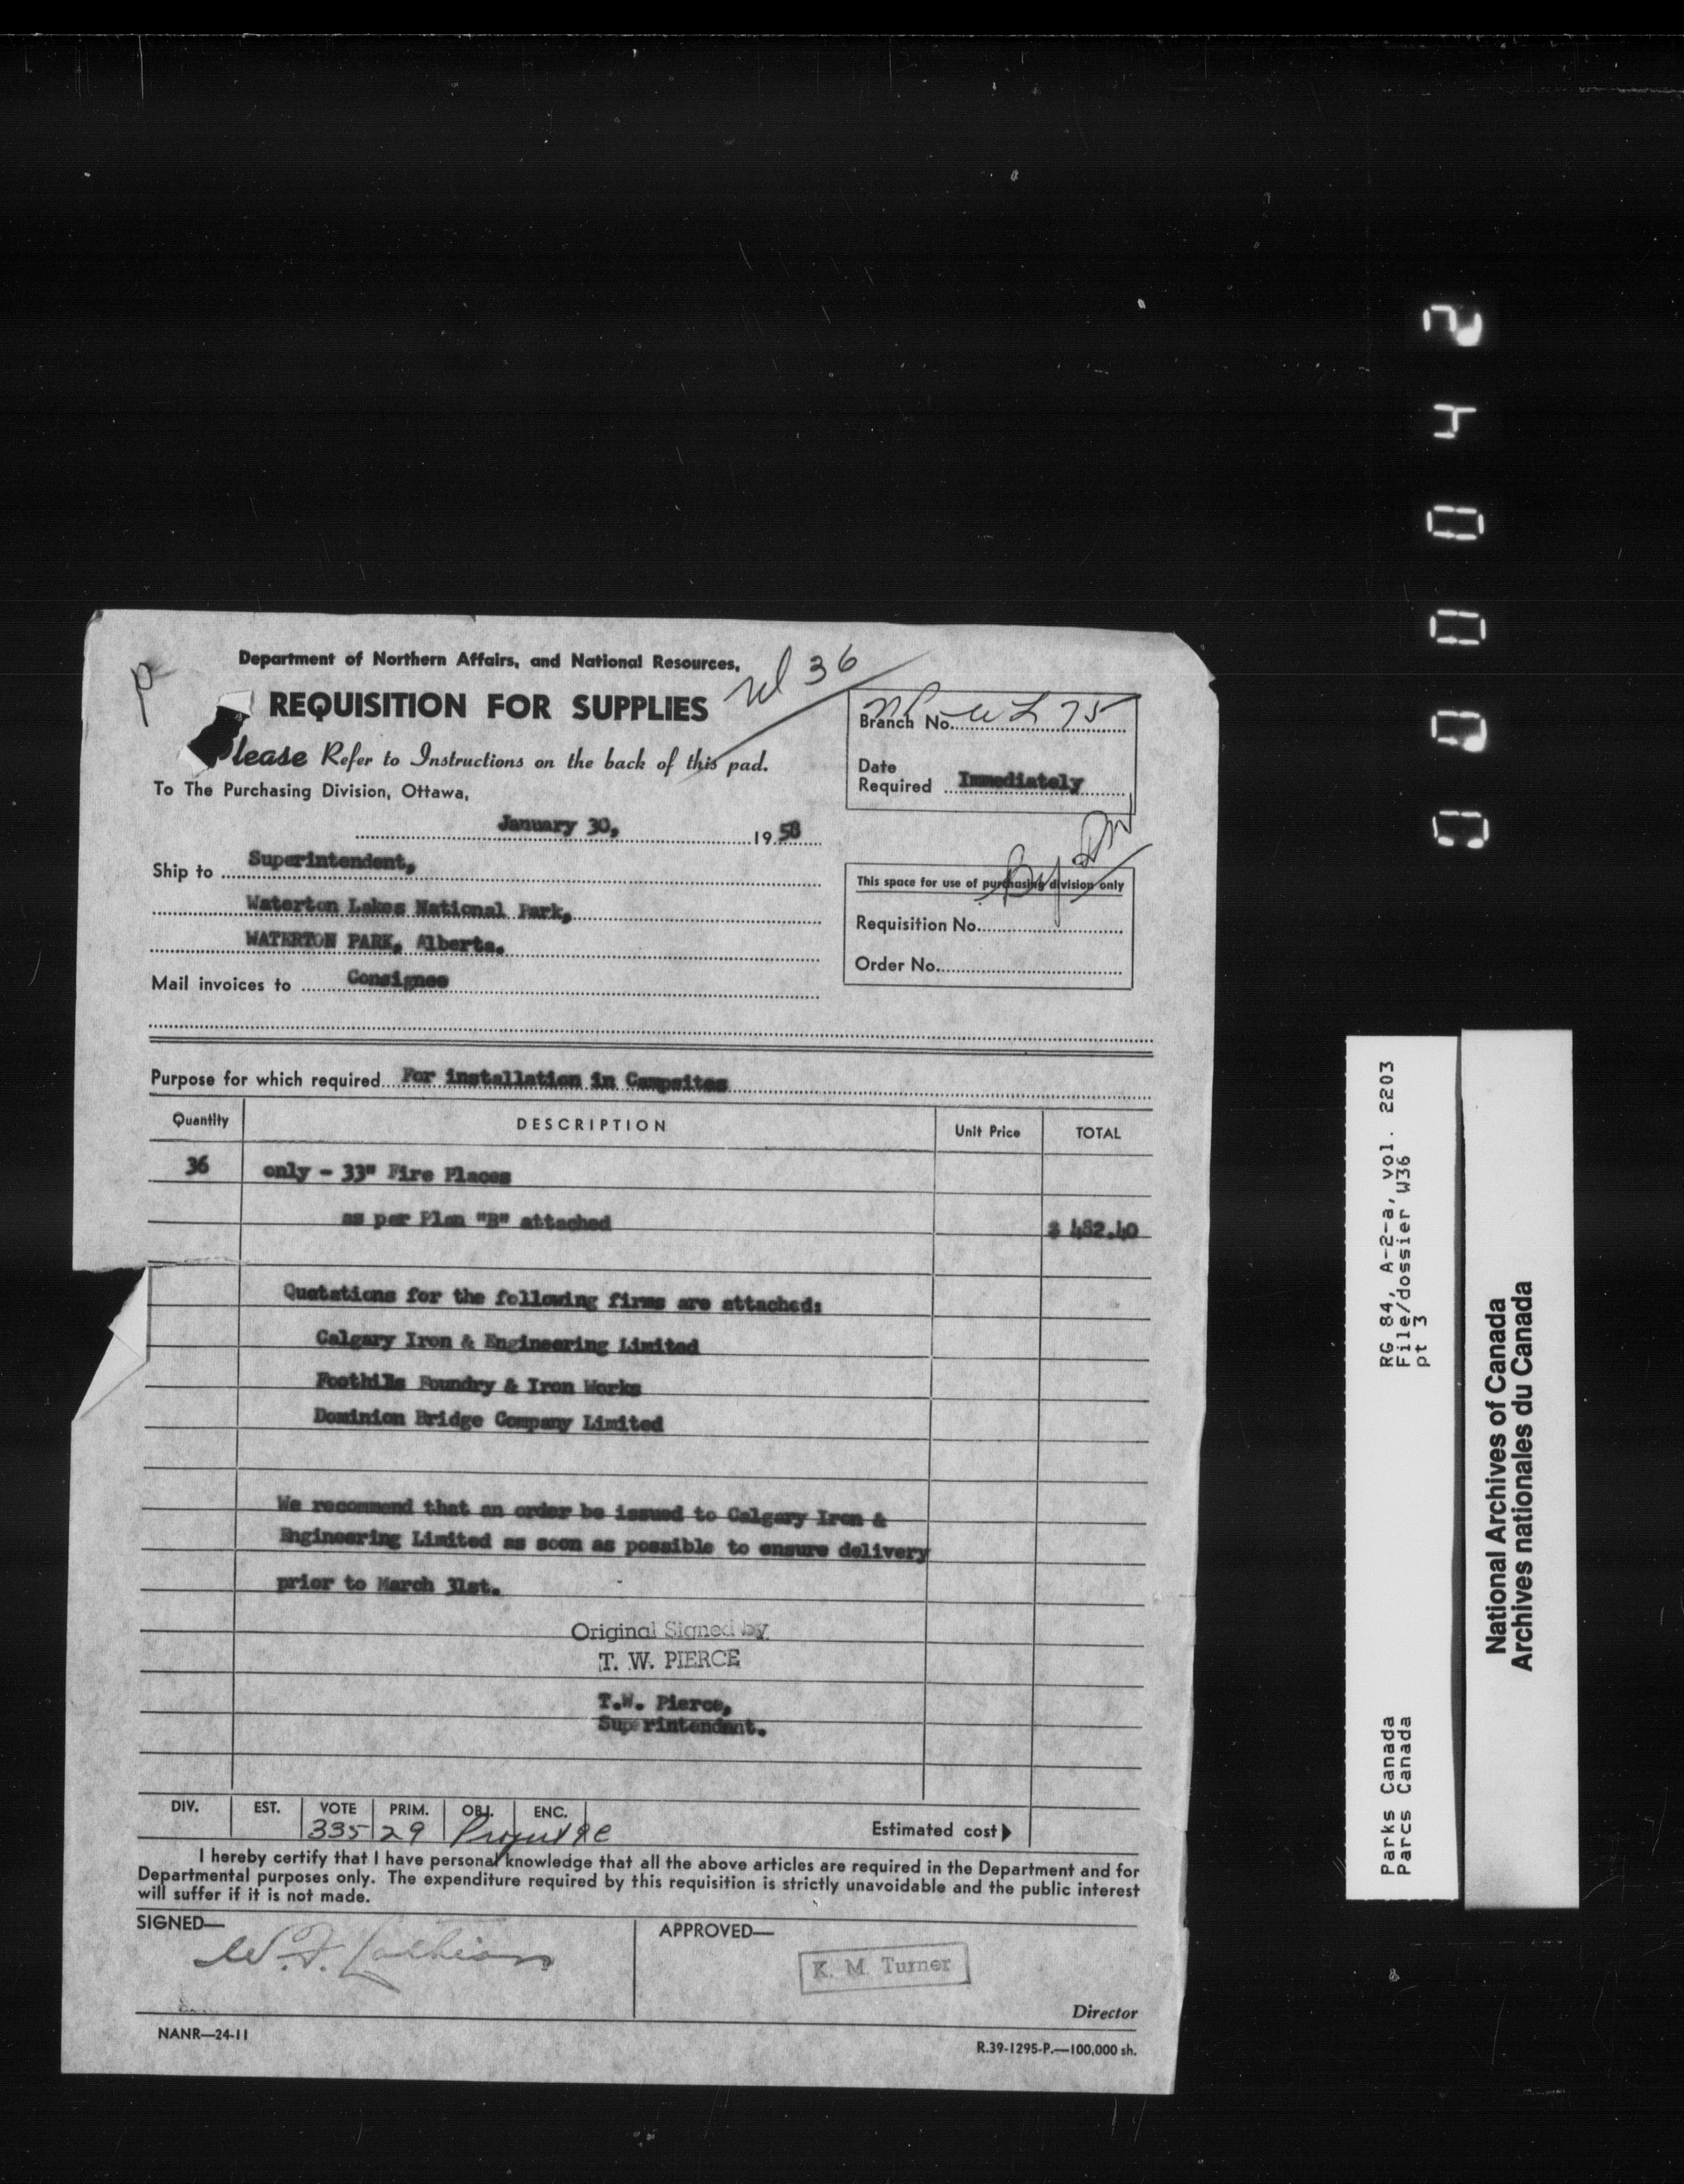 Department of Northern Affairs, and National Resources,
REQUISITION FOR SUPPLIES
Wl 36
Please Refer to Instructions on the back of this pad.
To The Purchasing Division, Ottawa,
Branch No. NP WL 75
Date
Required Immediately
January 30, 1958
Ship to Superintendent,
Waterton Lakes National Park,
WATERTON PARK, Alberta.
Mail invoices to Consignee
This space for use of purchasing division only
Requisition No.
Order No.
Purpose for which required For installation in Campsites
Quantity DESCRIPTION Unit Price TOTAL
36 only - 33" Fire Places
as per Plan "B" attached $ 482.40
Quotations for the following firms are attached:
Calgary Iron & Engineering Limited
Foothills Foundry & Iron Works
Dominion Bridge Company Limited
We recommend that an order be issued to Calgary Iron &
Engineering Limited as soon as possible to ensure delivery
prior to March 31st.
Original Signed by
T. W. PIERCE
T.W. Pierce,
Superintendent.
DIV. EST. VOTE PRIM. OBJ. ENC.
335 29 Project
Estimated cost
I hereby certify that I have personal knowledge that all the above articles are required in the Department and for
Departmental purposes only. The expenditure required by this requisition is strictly unavoidable and the public interest
will suffer if it is not made.
SIGNED—
W.F. Lothian
APPROVED—
K. M. Turner
Director
NANR—24-11
R.39-1295-P.—100,000 sh.
RG 84, A-2-a, vol. 2203
File/dossier W36
pt 3
Parks Canada
Parcs Canada
National Archives of Canada
Archives nationales du Canada